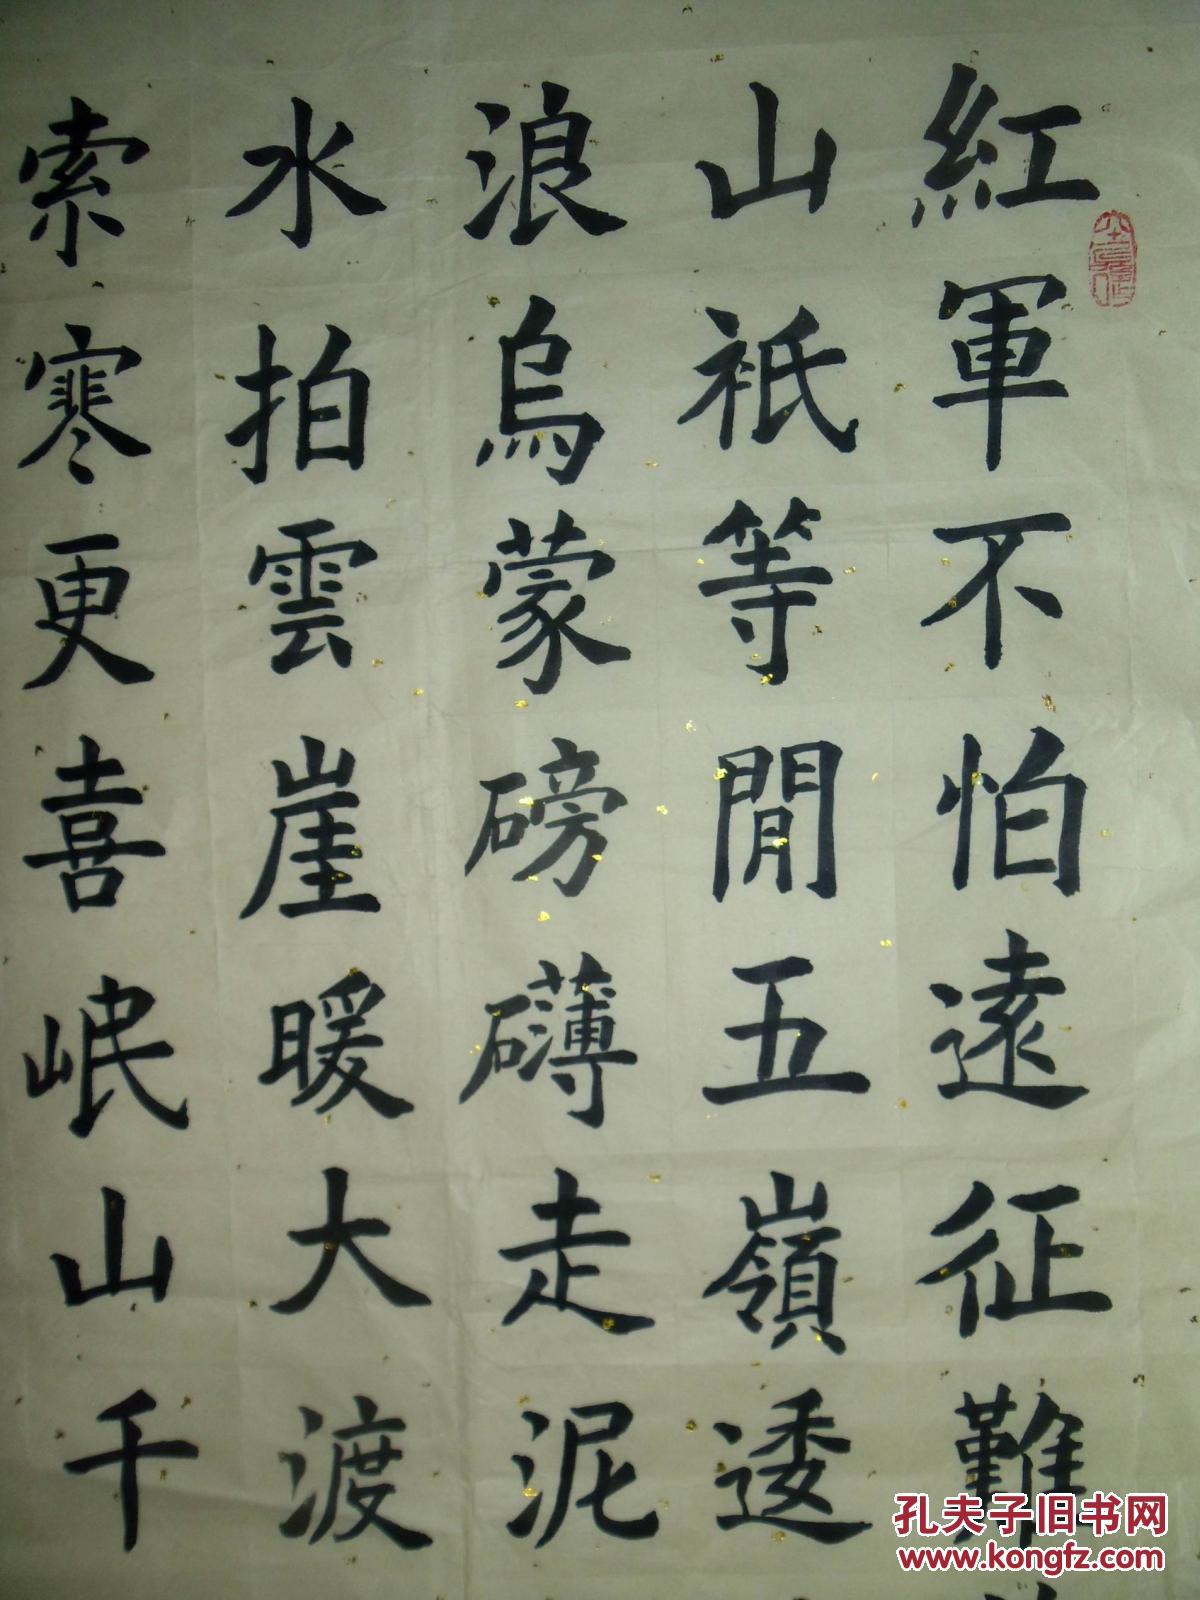 紅軍不怕遠征難
山祇等閒五嶺逶
浪烏蒙磅礴走泥
水拍雲崖暖大渡
索寒更喜岷山千
孔夫子旧书网
www.kongfz.com